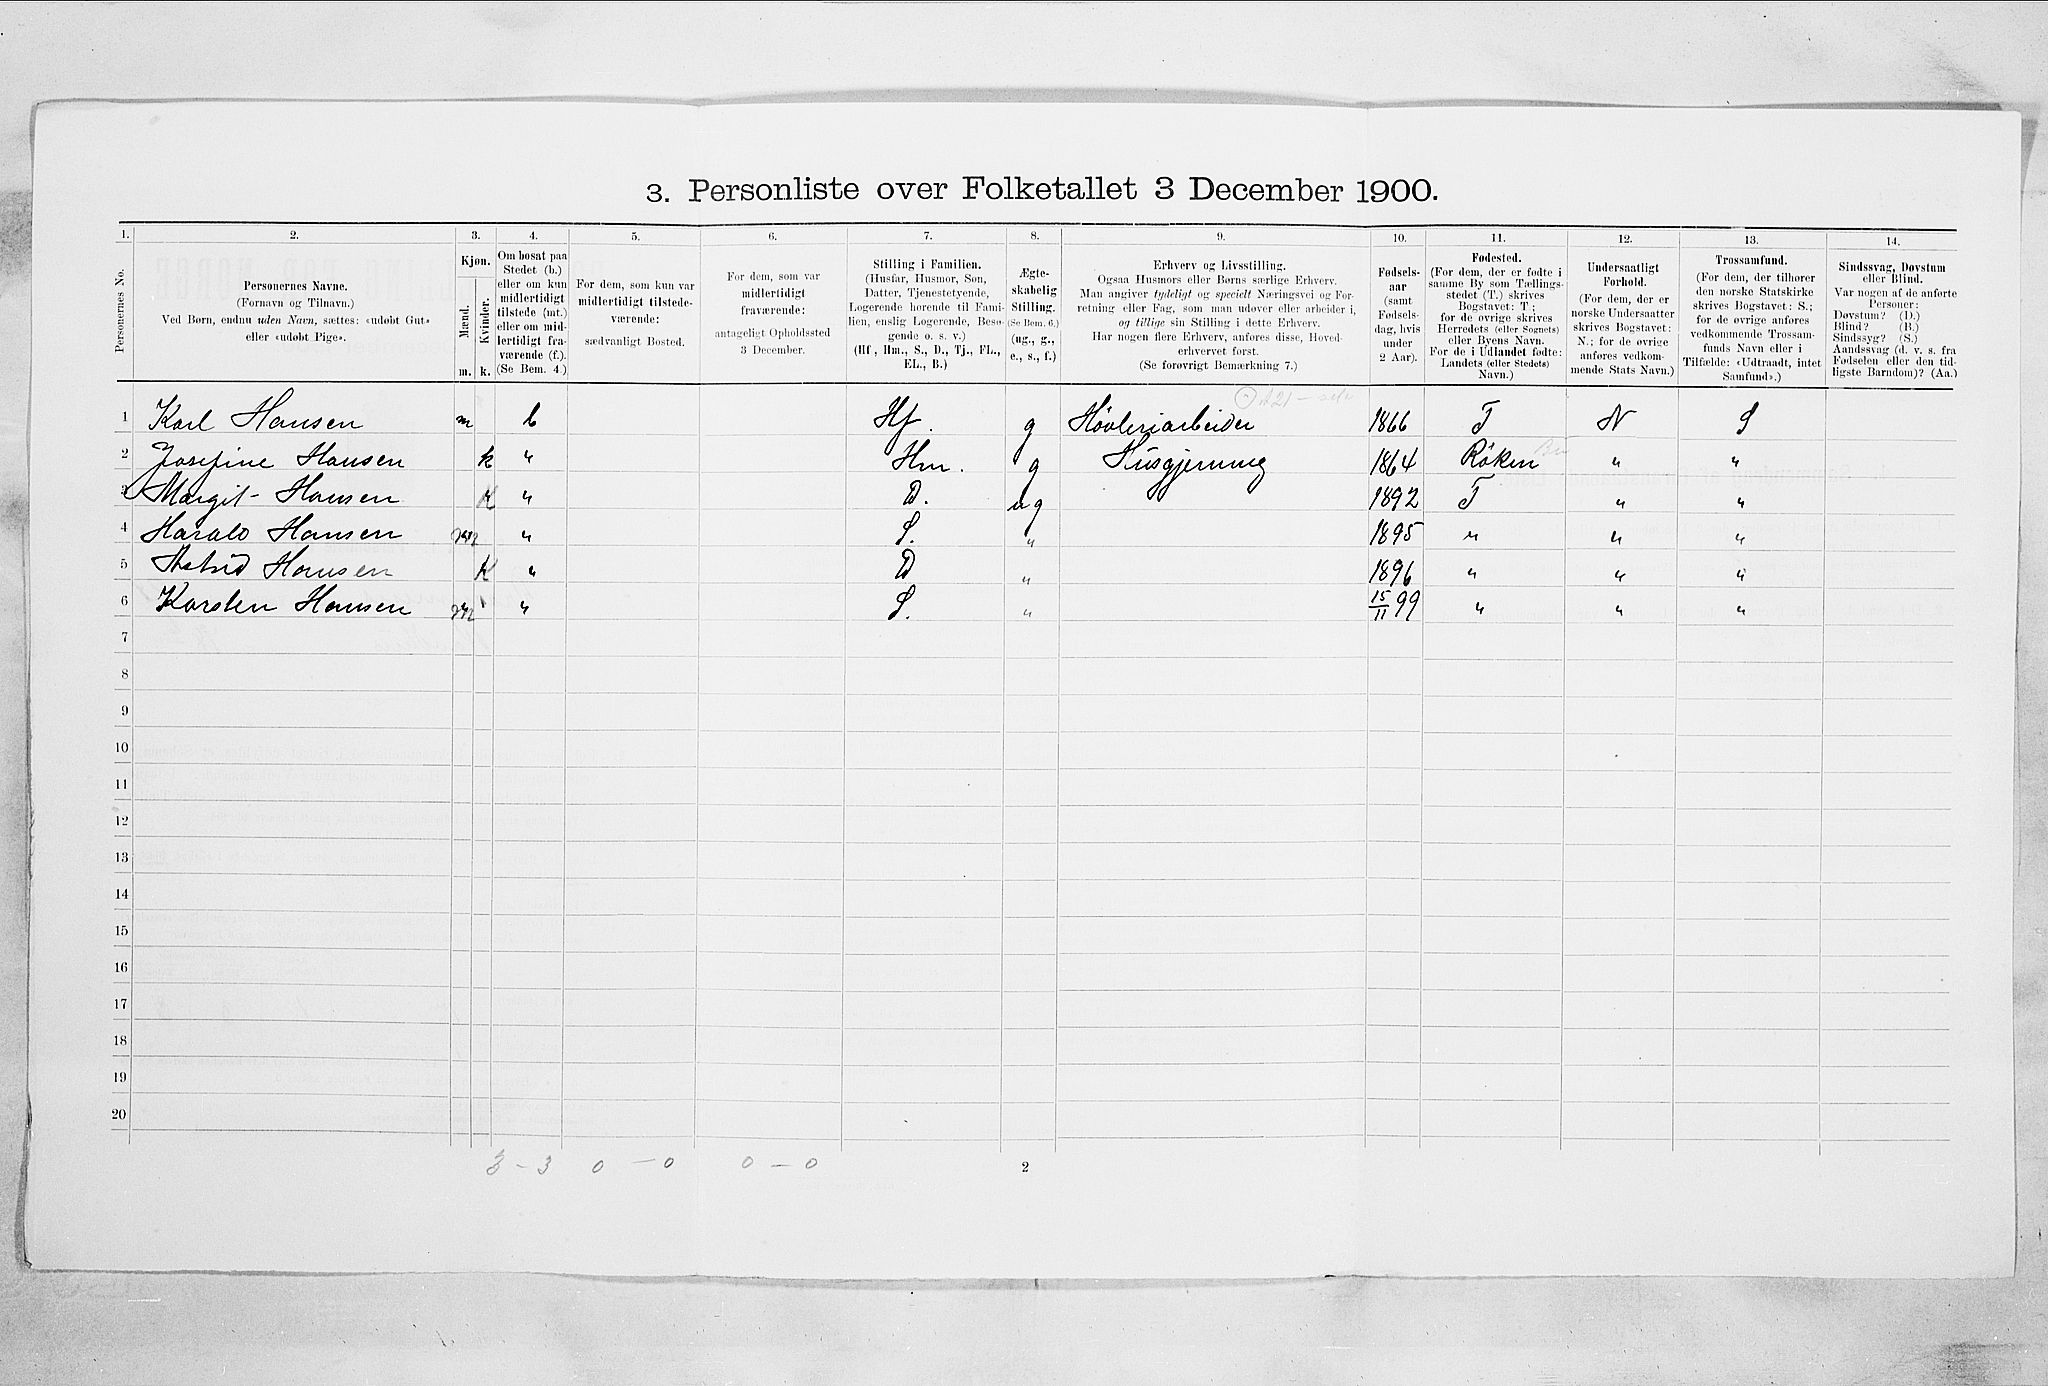 3. Personliste over Folketallet 3 December 1900.
1. 2. 3. 4. 5. 6. 7. 8. 9. 10. 11. 12. 13. 14.
Personernes No.
Personernes Navne.
(Fornavn og Tilnavn.)
Ved Børn, endnu uden Navn, sættes: «udøbt Gut»
eller «udøbt Pige».
Kjøn.
Mænd.
Kvinder.
m. k.
Om bosat paa
Stedet (b.)
eller om kun
midlertidigt
tilstede (mt.)
eller om mid-
lertidigt fra-
værende (f.).
(Se Bem. 4.)
For dem, som kun var
midlertidigt tilstede-
værende:
sædvanligt Bosted.
For dem, som var
midlertidigt
fraværende:
antageligt Opholdssted
3 December.
Stilling i Familien.
(Husfar, Husmor, Søn,
Datter, Tjenestetyende,
Logerende hørende til Fami-
lien, enslig Logerende, Besø-
gende o. s. v.)
(Hf., Hm., S., D., Tj., FL.,
EL., B.)
Ægte-
skabelig
Stilling.
(Se Bem. 6.)
(ug., g.,
e., s., f.)
Erhverv og Livsstilling.
Ogsaa Husmors eller Børns særlige Erhverv.
Man angiver tydeligt og specielt Næringsvei og For-
retning eller Fag, som man udøver eller arbeider i,
og tillige sin Stilling i dette Erhverv.
Har nogen flere Erhverv, anføres disse, Hoved-
erhvervet først.
(Se forøvrigt Bemærkning 7.)
Fødsels-
aar
(samt
Fødsels-
dag, hvis
under
2 Aar).
Fødested.
(For dem, der er fødte i
samme By som Tællings-
stedet (T.) skrives
Bogstavet: T;
for de øvrige skrives
Herredets (eller Sognets)
eller Byens Navn.
For de i Udlandet fødte:
Landets (eller Stedets)
Navn.)
Undersaatligt
Forhold.
(For dem, der er
norske Undersaatter
skrives Bogstavet:
N.; for de øvrige
anføres vedkom-
mende Stats Navn.)
Trossamfund.
(For dem, der tilhører
den norske Statskirke
skrives Bogstavet: S.;
for de øvrige anføres
vedkommende Trossam-
funds Navn eller i
Tilfælde: «Udtraadt, intet
Samfund».)
Sindssvag, Døvstum
eller Blind.
Var nogen af de anførte
Personer:
Døvstum? (D.)
Blind? (B.)
Sindssyg? (S.)
Aandssvag (d. v. s. fra
Fødselen eller den tid-
ligste Barndom)? (Aa.)
1 Karl Hansen m b Hf. g Høvleriarbeider 1866 T N S
2 Josefine Hansen k " Hm. g Husgjerning 1864 Röken " "
3 Margit Hansen K " D. ug 1892 T " "
4 Harald Hansen m " S. " 1895 " " "
5 Astrid Hansen K " D " 1896 " " "
6 Karsten Hansen m " S. " 15/11 99 " " "
7
8
9
10
11
12
13
14
15
16
17
18
19
20
3 - 3 0 - 0 0 - 0 2